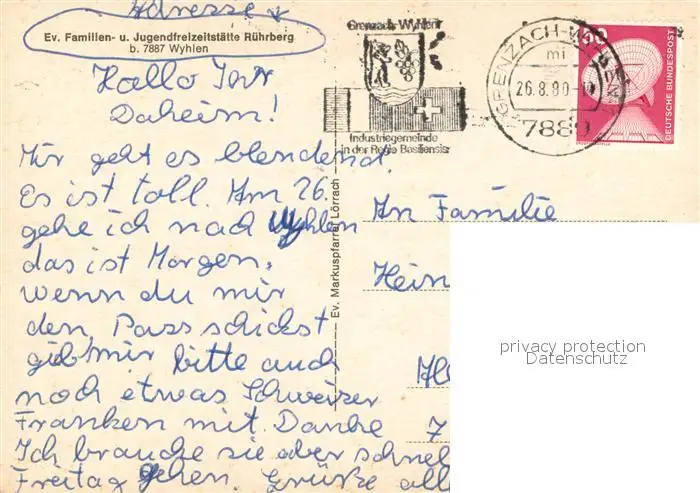 Adresse
Ev. Familien- u. Jugendfreizeitstätte Rührberg
b. 7887 Wyhlen
Hallo Ihr
Daheim!
Mir geht es blendend.
Es ist toll. Am 26.
gehe ich nach Wyhlen
das ist Morgen,
wenn du mir
den Pass schickst
gib mir bitte auch
noch etwas Schweizer
Franken mit. Danke
Ich brauche sie aber schnell
Freitag gehen. Grüße all
Ev. Markuspfarrei Lörrach
Grenzach-Wyhlen
Industriegemeinde
in der Regio Basiliensis
GRENZACH-WYHLEN
mi
26.8.80
7889
60
DEUTSCHE BUNDESPOST
An Familie
Hein
7
privacy protection
Datenschutz